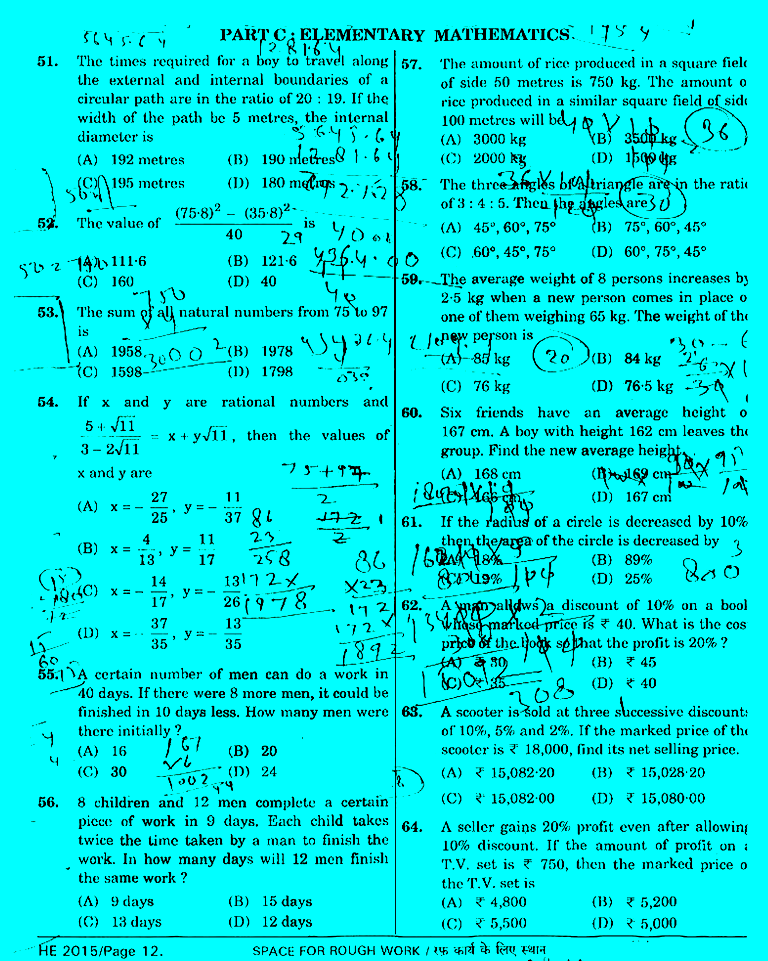 PART C : ELEMENTARY MATHEMATICS
51. The times required for a boy to travel along
the external and internal boundaries of a
circular path are in the ratio of 20 : 19. If the
width of the path be 5 metres, the internal
diameter is
(A) 192 metres (B) 190 metres
(C) 195 metres (D) 180 metres
52. The value of ((75·8)² – (35·8)²)/40 is
(A) 111·6 (B) 121·6
(C) 160 (D) 40
53. The sum of all natural numbers from 75 to 97
is
(A) 1958 (B) 1978
(C) 1598 (D) 1798
54. If x and y are rational numbers and
(5 + √11)/(3 – 2√11) = x + y√11, then the values of
x and y are
(A) x = – 27/25, y = – 11/37
(B) x = 4/13, y = 11/17
(C) x = – 14/17, y = – 13/26
(D) x = – 37/35, y = – 13/35
55. A certain number of men can do a work in
40 days. If there were 8 more men, it could be
finished in 10 days less. How many men were
there initially ?
(A) 16 (B) 20
(C) 30 (D) 24
56. 8 children and 12 men complete a certain
piece of work in 9 days. Each child takes
twice the time taken by a man to finish the
work. In how many days will 12 men finish
the same work ?
(A) 9 days (B) 15 days
(C) 13 days (D) 12 days
57. The amount of rice produced in a square field
of side 50 metres is 750 kg. The amount o
rice produced in a similar square field of side
100 metres will be
(A) 3000 kg (B) 3500 kg
(C) 2000 kg (D) 1500 kg
58. The three angles of a triangle are in the ratio
of 3 : 4 : 5. Then the angles are
(A) 45°, 60°, 75° (B) 75°, 60°, 45°
(C) 60°, 45°, 75° (D) 60°, 75°, 45°
59. The average weight of 8 persons increases by
2·5 kg when a new person comes in place o
one of them weighing 65 kg. The weight of the
new person is
(A) 85 kg (B) 84 kg
(C) 76 kg (D) 76·5 kg
60. Six friends have an average height o
167 cm. A boy with height 162 cm leaves the
group. Find the new average height.
(A) 168 cm (B) 169 cm
(C) 166 cm (D) 167 cm
61. If the radius of a circle is decreased by 10%
then the area of the circle is decreased by
(A) 18% (B) 89%
(C) 19% (D) 25%
62. A man allows a discount of 10% on a book
whose marked price is ₹ 40. What is the cos
price of the book so that the profit is 20% ?
(A) ₹ 30 (B) ₹ 45
(C) ₹ 35 (D) ₹ 40
63. A scooter is sold at three successive discounts
of 10%, 5% and 2%. If the marked price of the
scooter is ₹ 18,000, find its net selling price.
(A) ₹ 15,082·20 (B) ₹ 15,028·20
(C) ₹ 15,082·00 (D) ₹ 15,080·00
64. A seller gains 20% profit even after allowing
10% discount. If the amount of profit on a
T.V. set is ₹ 750, then the marked price o
the T.V. set is
(A) ₹ 4,800 (B) ₹ 5,200
(C) ₹ 5,500 (D) ₹ 5,000
HE 2015/Page 12. SPACE FOR ROUGH WORK / रफ़ कार्य के लिए स्थान